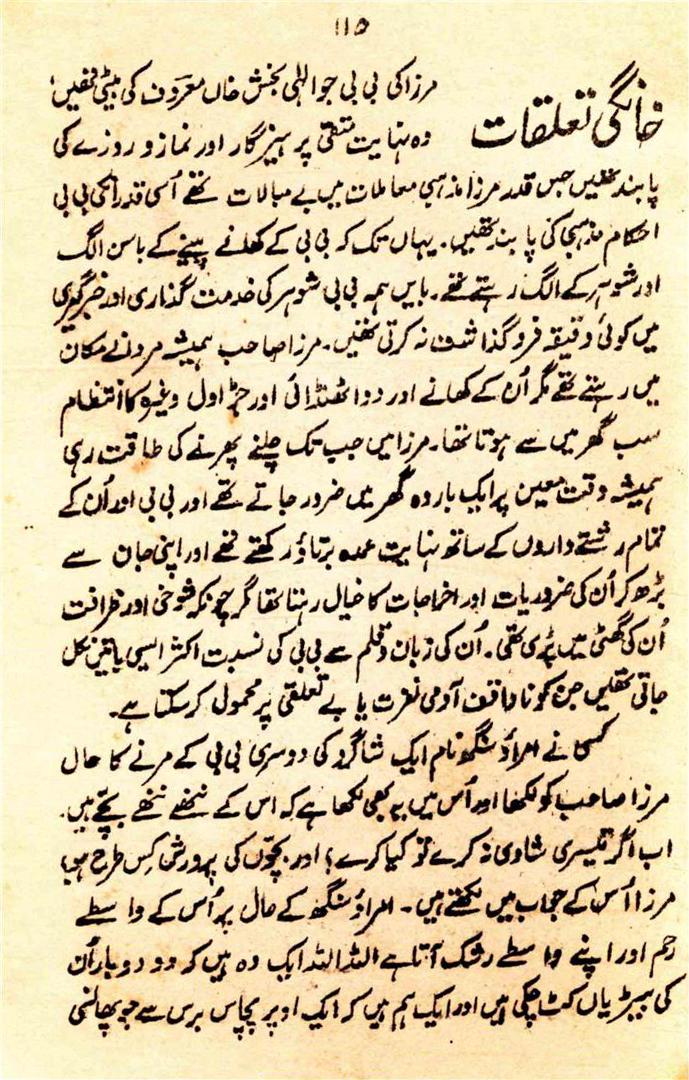 ۱۱۵
خانگی تعلقات
مرزا کی بی بی جو الٰہی بخش خاں معروف کی بیٹی تھیں،
وہ نہایت متقی پرہیزگار اور نماز و روزے کی
پابند تھیں جس قدر مرزا مذہبی معاملات میں بے مبالات تھے اُسی قدر انکی بی بی
احکام مذہبی کی پابند تھیں۔ یہاں تک کہ بی بی کے کھانے پینے کے باسن الگ
اور شوہر کے الگ رہتے تھے۔ بایں ہمہ بی بی شوہر کی خدمت گذاری اور خبرگیری
میں کوئی دقیقہ فروگذاشت نہ کرتی تھیں۔ مرزا صاحب ہمیشہ مردانے مکان
میں رہتے تھے مگر اُن کے کھانے اور دوا ٹھنڈائی اور جڑاول وغیرہ کا انتظام
سب گھر میں سے ہوتا تھا۔ مرزا میں جب تک چلنے پھرنے کی طاقت رہی
ہمیشہ وقت معین پر ایک بار وہ گھر میں ضرور جاتے تھے اور بی بی اور اُن کے
تمام رشتے داروں کے ساتھ نہایت عمدہ برتاؤ رکھتے تھے اور اپنی جان سے
بڑھ کر اُن کی ضروریات اور اخراجات کا خیال رہتا تھا مگر چونکہ شوخی اور ظرافت
اُن کی گھٹی میں پڑی تھی۔ اُن کی زبان و قلم سے بی بی کی نسبت اکثر ایسی باتیں نکل
جاتی تھیں جن کو ناواقف آدمی نفرت یا بے تعلقی پر محمول کر سکتا ہے۔
کسی نے امراؤ سنگھ نام ایک شاگرد کی دوسری بی بی کے مرنے کا حال
مرزا صاحب کو لکھا اور اُس میں یہ بھی لکھا ہے کہ اس کے ننھے ننھے بچے ہیں۔
اب اگر تیسری شادی نہ کرے تو کیا کرے؟ اور بچوں کی پرورش کس طرح ہو؟
مرزا اُس کے جواب میں لکھتے ہیں۔ امراؤ سنگھ کے حال پر اُس کے واسطے
رحم اور اپنے واسطے رشک آتا ہے اللہ اللہ ایک وہ ہیں کہ دو دو بار اُن
کی بیڑیاں کٹ چکی ہیں اور ایک ہم ہیں کہ ایک اوپر پچاس برس سے جو پھانسی